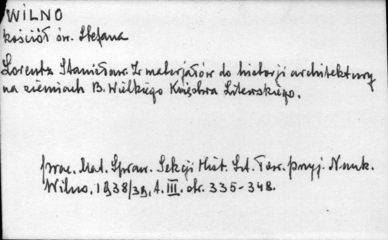 WILNO
kościół św. Stefana
Lorentz Stanisław. Z materjałów do historji architektury
na ziemiach B. Wielkiego Księstwa Litewskiego.
prac. Mat. Spraw. Sekcji Hist. Szt. Tow. przyj. Nauk.
Wilno. 1938/39, t. III. str. 335-348.